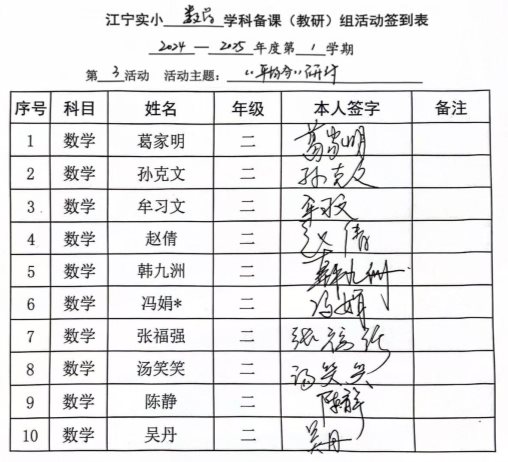 江宁实小 数学 学科备课（教研）组活动签到表
2024 — 2025 年度第 1 学期
第 3 活动 活动主题： “平均分”研讨
序号 科目 姓名 年级 本人签字 备注
1 数学 葛家明 二 葛家明
2 数学 孙克文 二 孙克文
3 数学 牟习文 二 牟习文
4 数学 赵倩 二 赵倩
5 数学 韩九洲 二 韩九洲
6 数学 冯娟* 二 冯娟
7 数学 张福强 二 张福强
8 数学 汤笑笑 二 汤笑笑
9 数学 陈静 二 陈静
10 数学 吴丹 二 吴丹